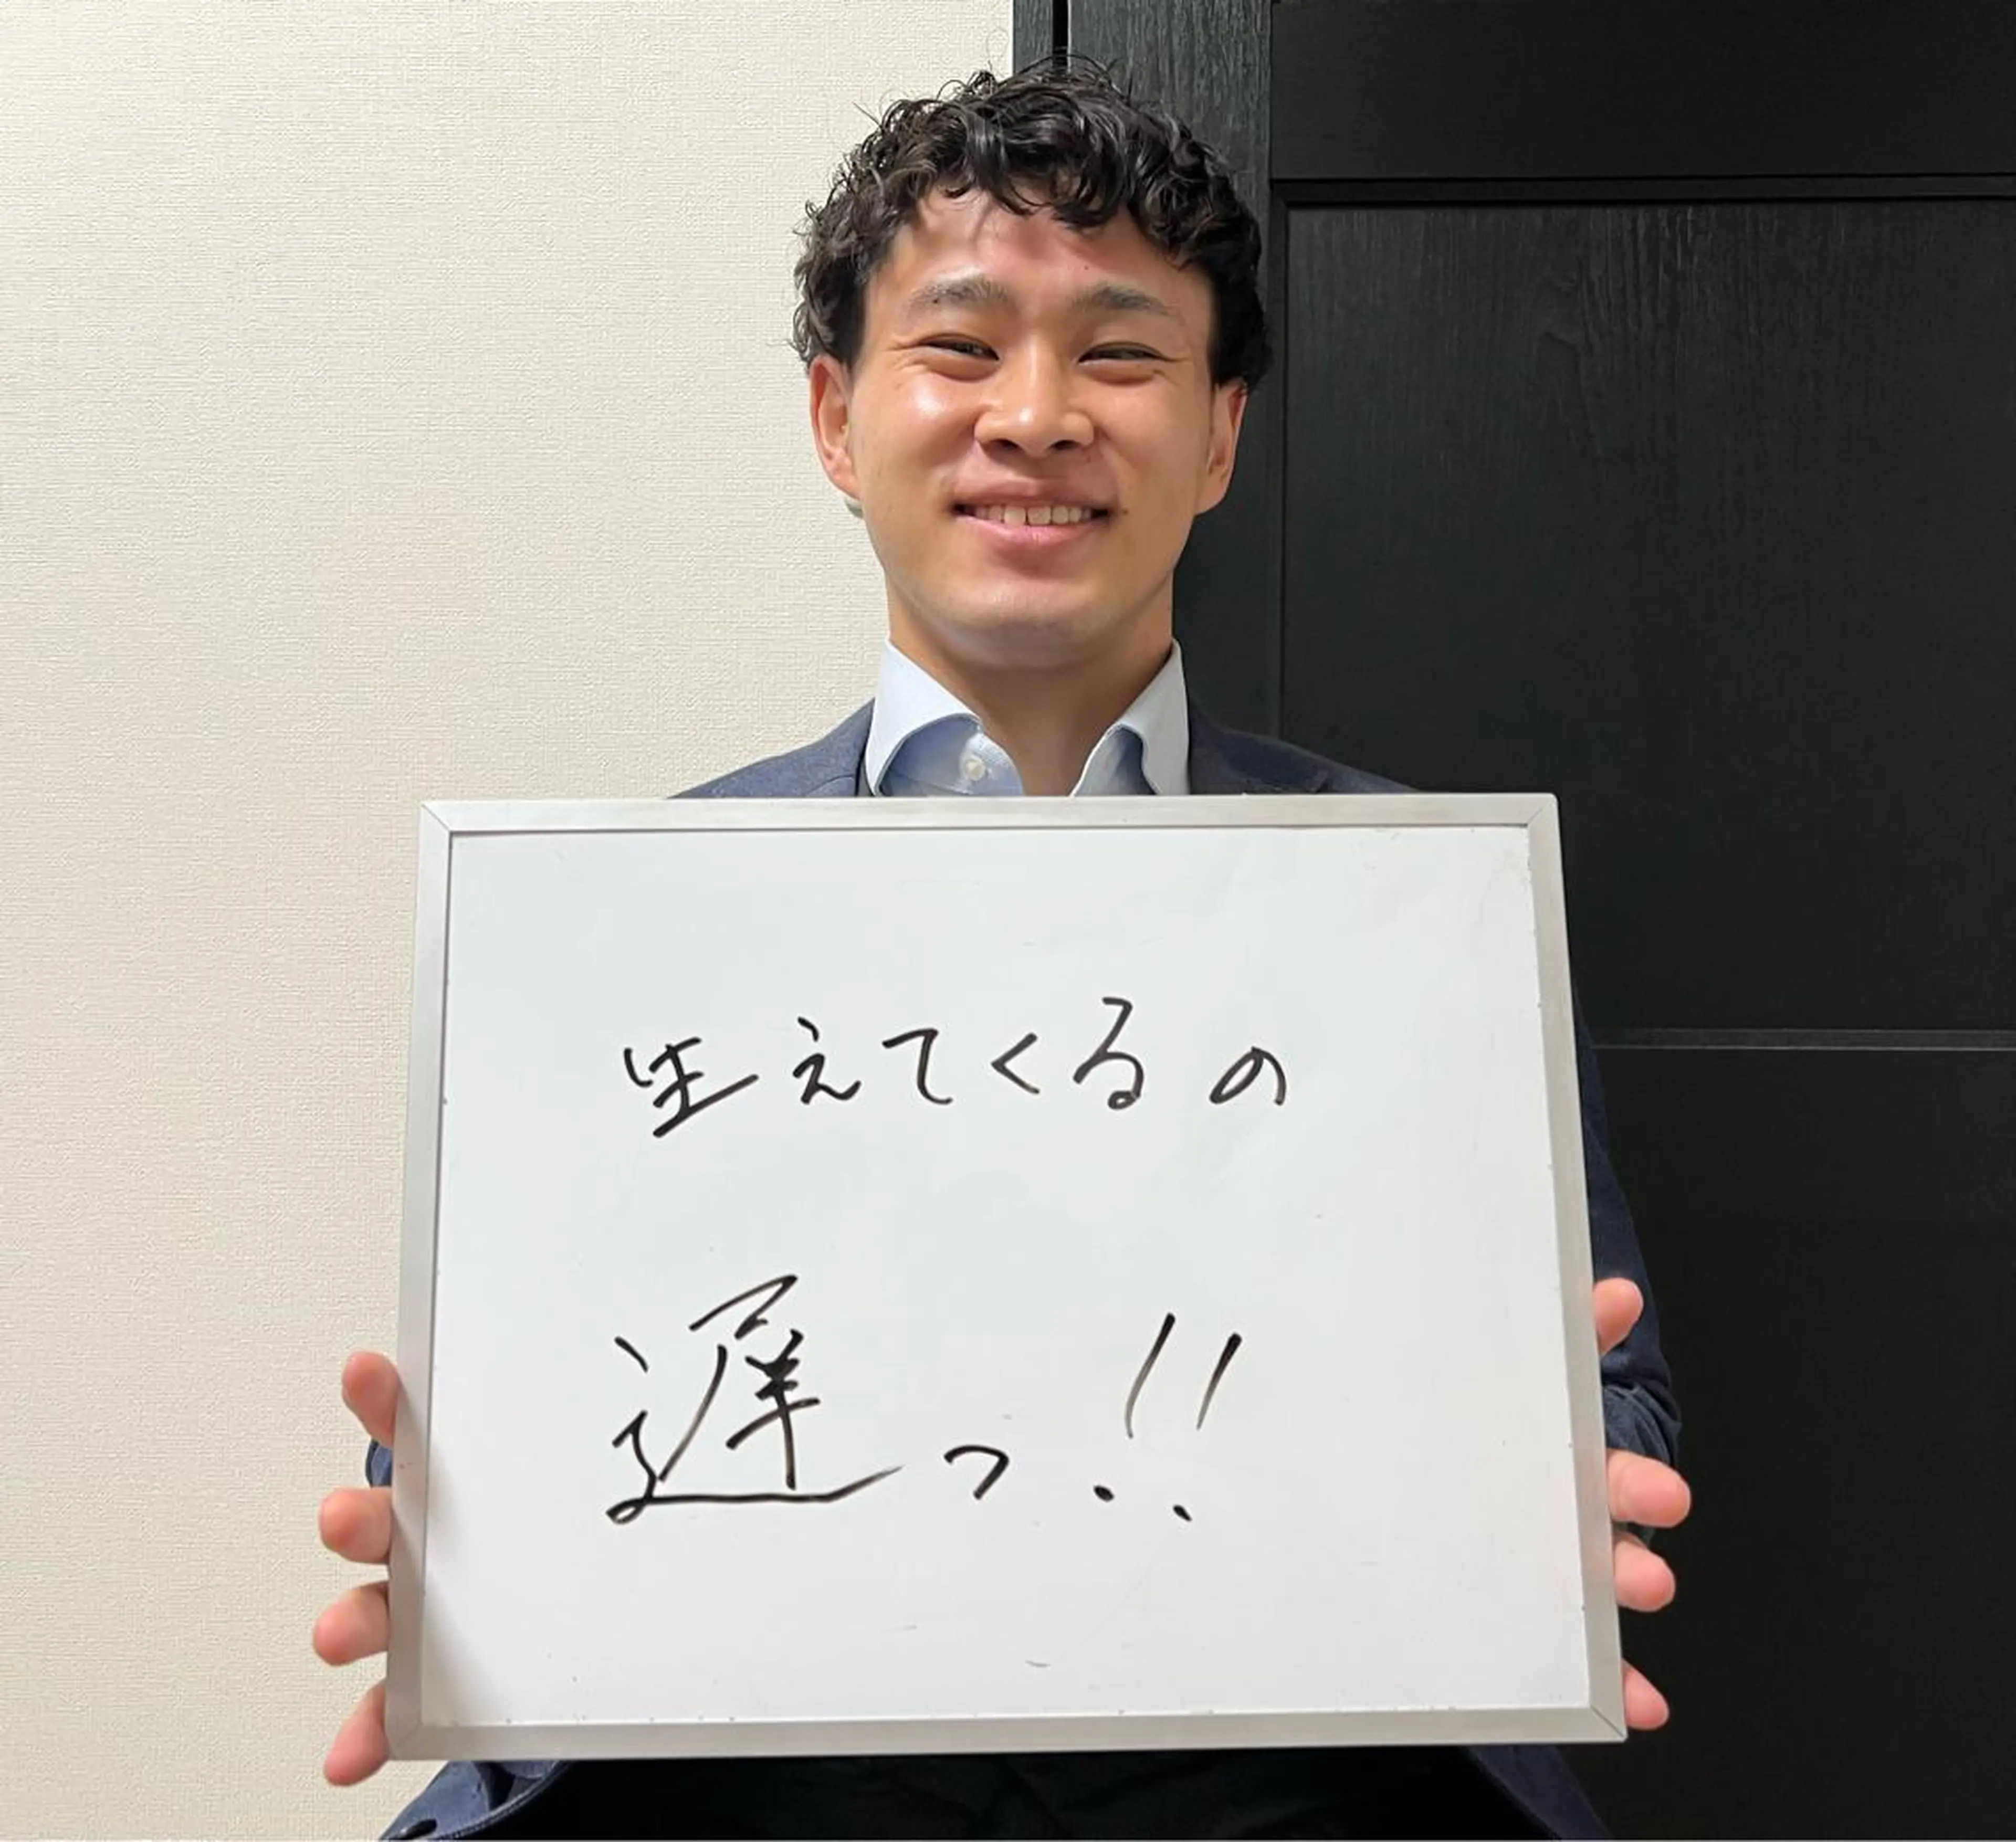 生えてくるの
遅っ!!